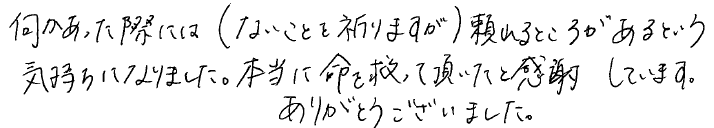 何かあった際には（ないことを祈りますが）頼れるところがあるという
気持ちになりました。本当に命を救って頂いたと感謝 しています。
ありがとうございました。